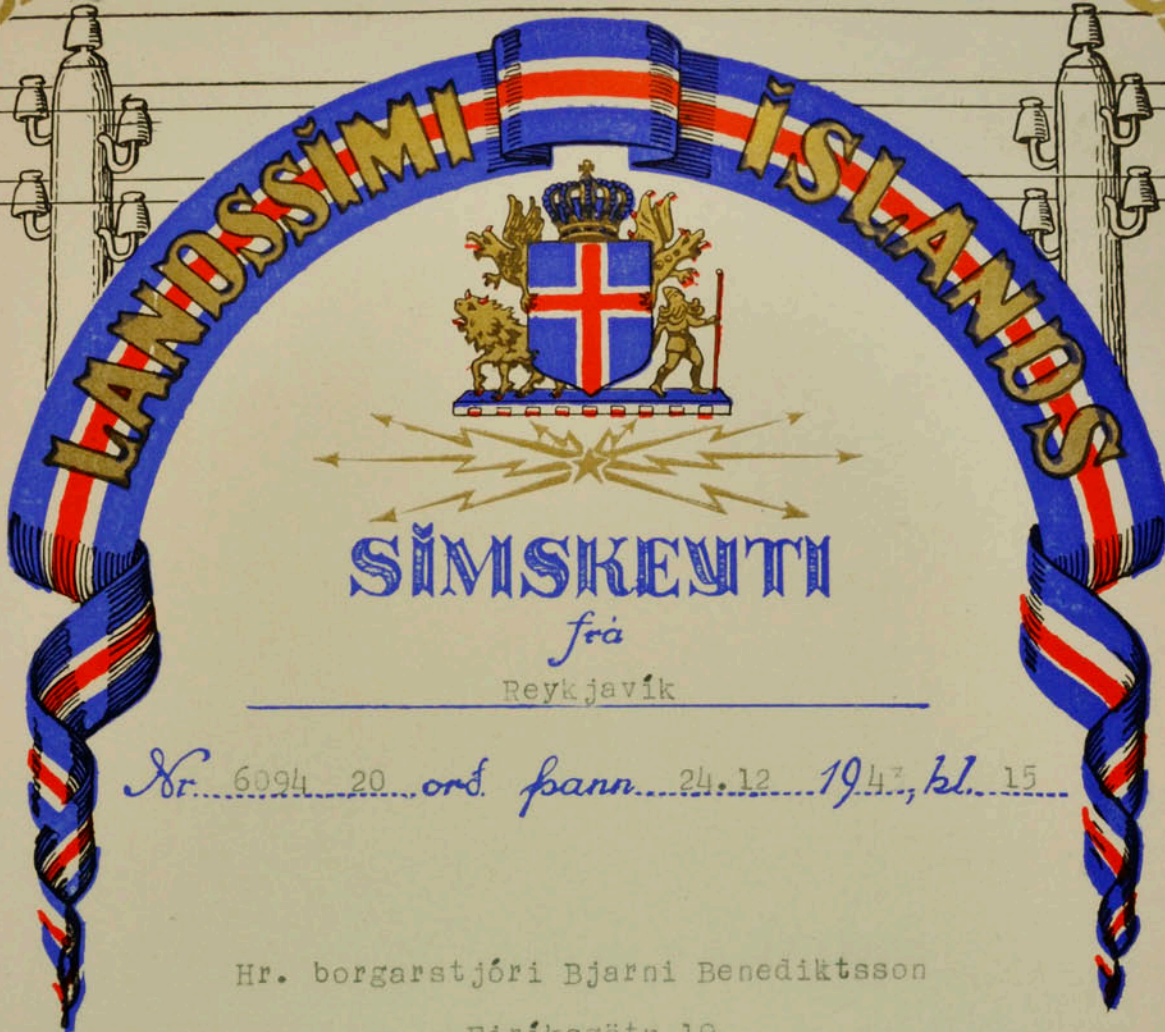 LANDSSÍMI ÍSLANDS
SÍMSKEYTI
frá
Reykjavík
Nr. 6094 20 orð. þann 24.12 1943, kl. 15
Hr. borgarstjóri Bjarni Benediktsson
Eiríksgötu 19